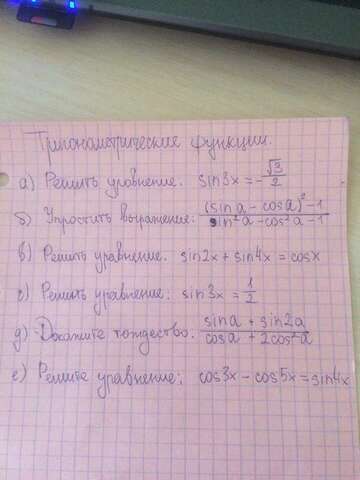 Тригонометрические функции.
а) Решить уравнение. sin3x = -√3/2
б) Упростить выражение: (sin a - cos a)² - 1 / sin²a - cos²a - 1
в) Решить уравнение. sin2x + sin4x = cosx
г) Решить уравнение: sin3x = 1/2
д) Докажите тождество. sin a + sin2a / cos a + 2cos²a
е) Решите уравнение: cos3x - cos5x = sin4x